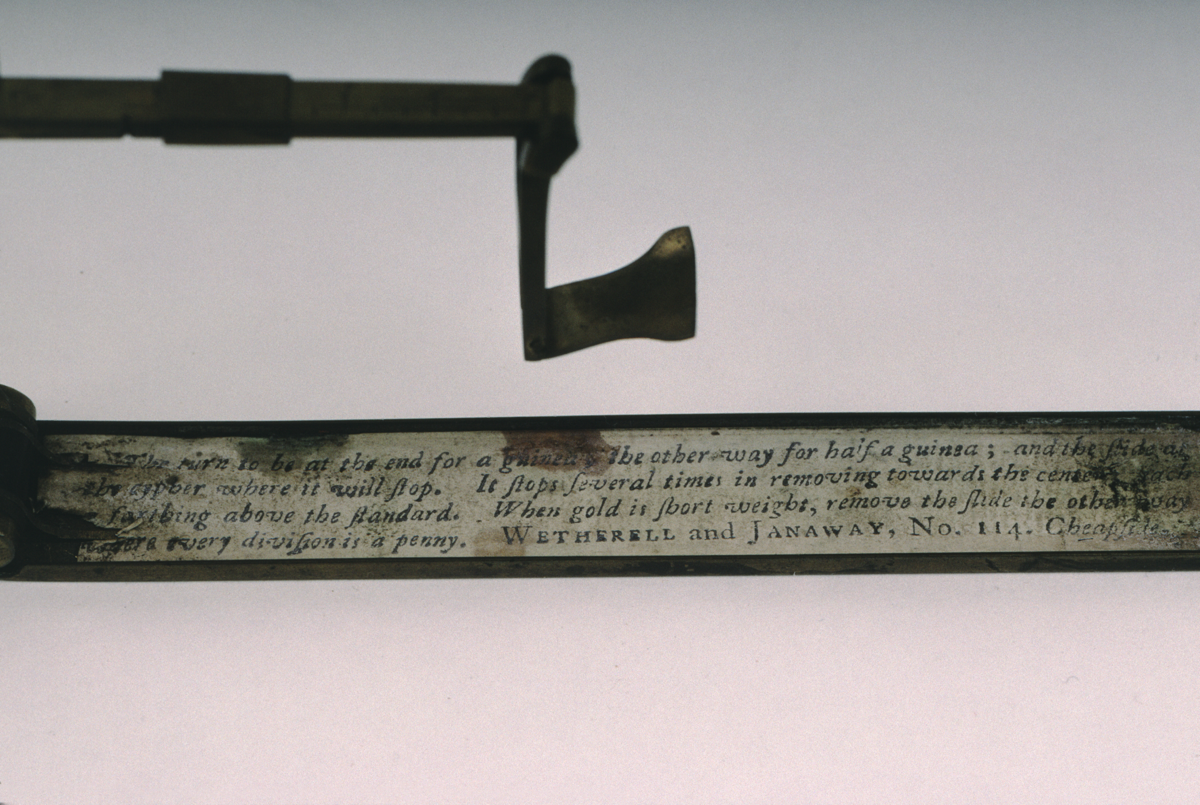 The turn to be at the end for a guinea; the other way for half a guinea; and the ſlide at
the cypher where it will ſtop. It ſtops ſeveral times in removing towards the center, each
a farthing above the ſtandard. When gold is ſhort weight, remove the ſlide the other way
where every diviſion is a penny. WETHERELL and JANAWAY, No. 114. Cheapſide.